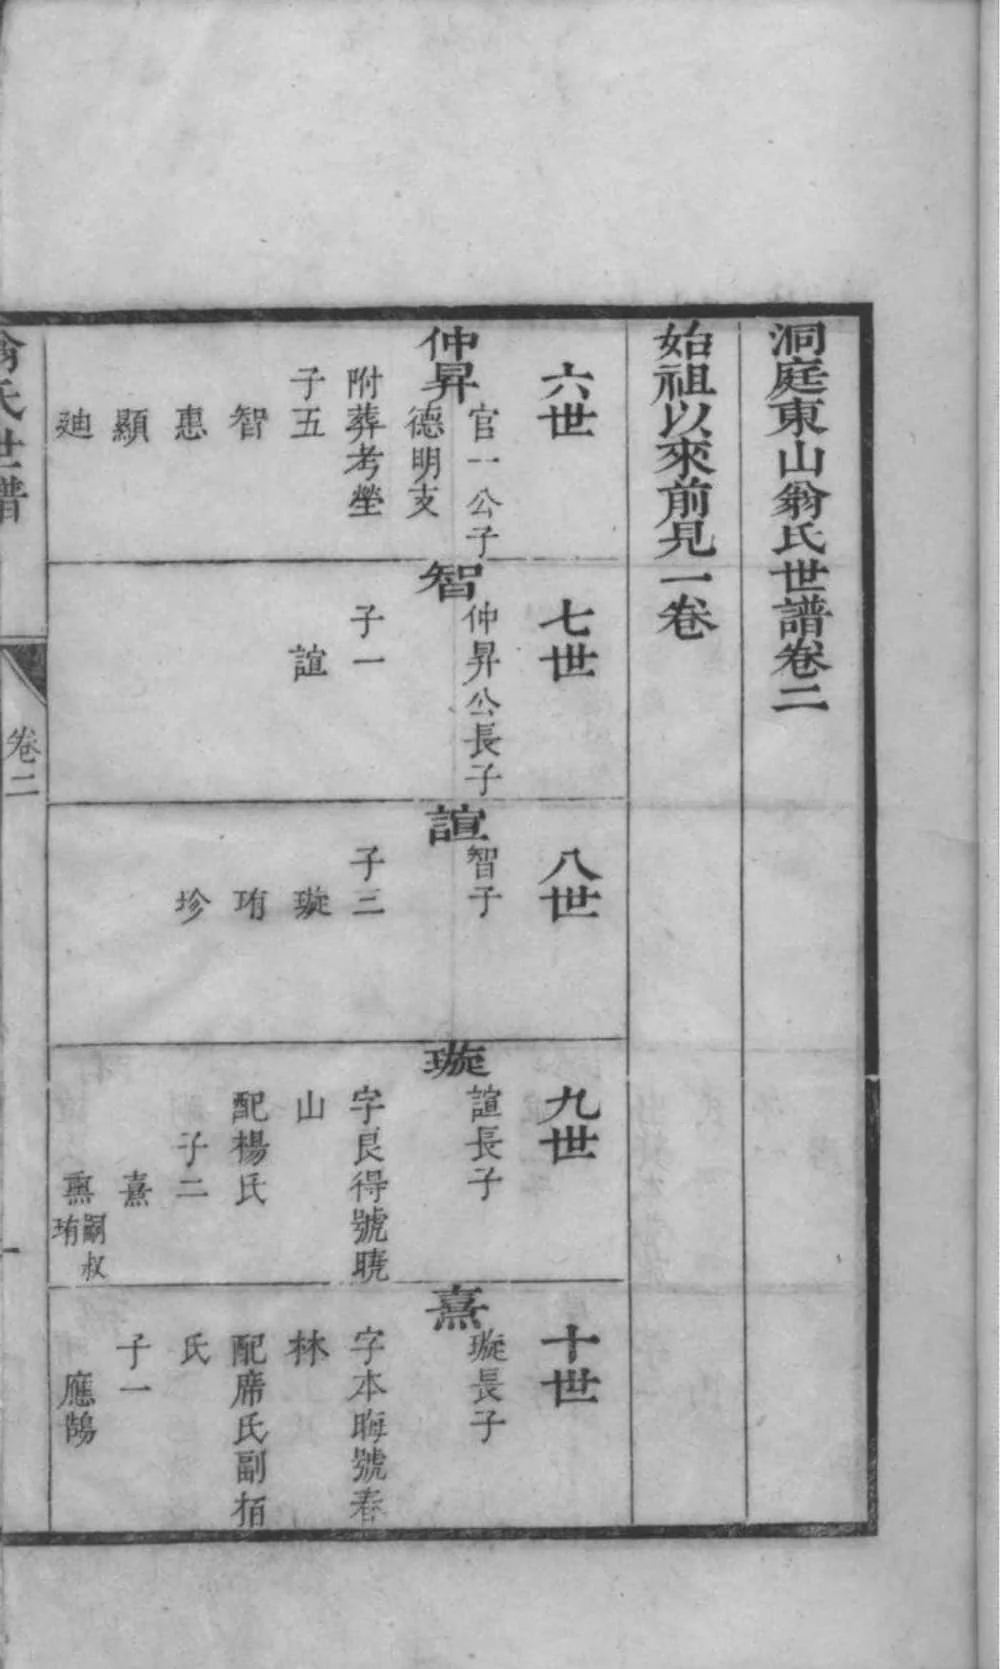 洞庭東山翁氏世譜卷二
始祖以來前見一卷
六世
仲昇
官一公子
德明支
附葬考塋
子五
智
惠
顯
迪
七世
智
仲昇公長子
子一
誼
八世
誼
智子
子三
璇
珛
珍
九世
璇
誼長子
字艮得號曉
山
配楊氏
子二
熹
熏嗣叔
珛
十世
熹
璇長子
字本晦號春
林
配席氏副栢
氏
子一
應鵠
翁氏世譜
卷二
一